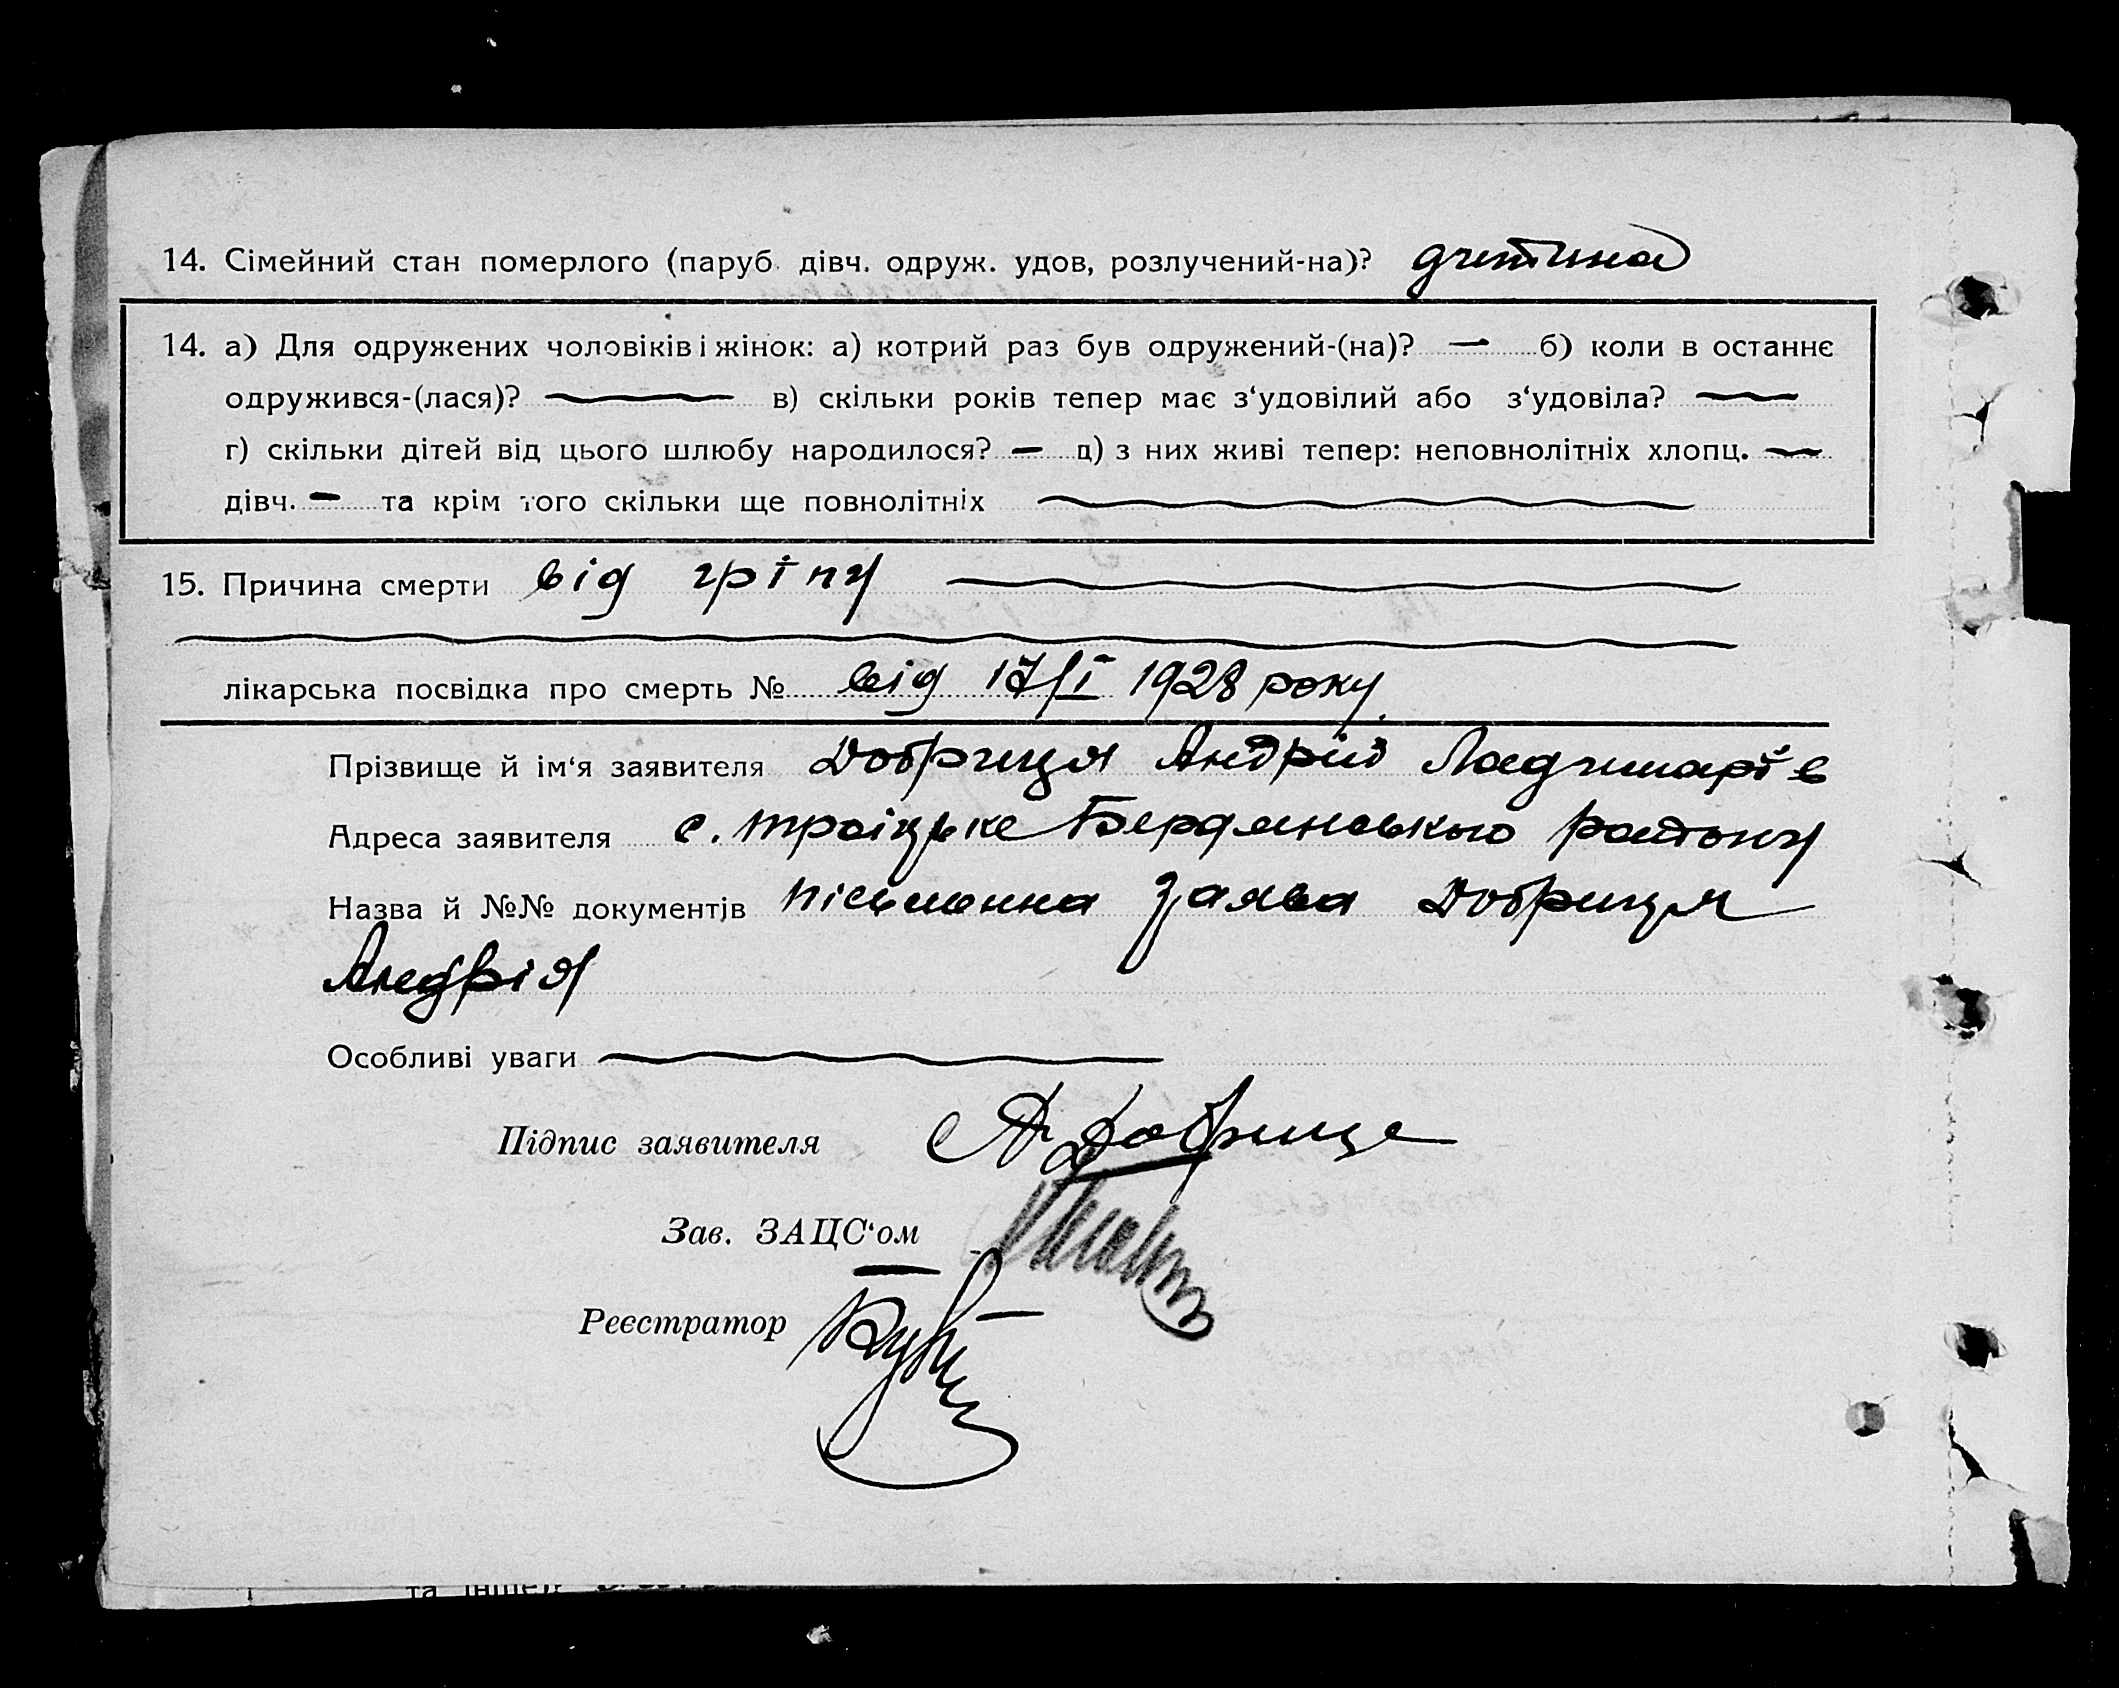 14. Сімейний стан померлого (паруб. дівч. одруж. удов, розлучений-на)? дитина
14. а) Для одружених чоловіків і жінок: а) котрий раз був одружений-(на)? — б) коли в останнє
одружився-(лася)? — в) скільки років тепер має з‘удовілий або з‘удовіла? —
г) скільки дітей від цього шлюбу народилося? — д) з них живі тепер: неповнолітніх хлопц. —
дівч. — та крім того скільки ще повнолітніх —
15. Причина смерти від гріпу —
лікарська посвідка про смерть № від 17/I 1928 року.
Прізвище й ім‘я заявителя Добриця Андрій
Адреса заявителя с. Троіцьке Бердянського району
Назва й №№ документів пісьменна заява Добриця
Андрія
Особливі уваги —
Підпис заявителя А Добрице
Зав. ЗАЦС‘ом
Реєстратор
та інше)